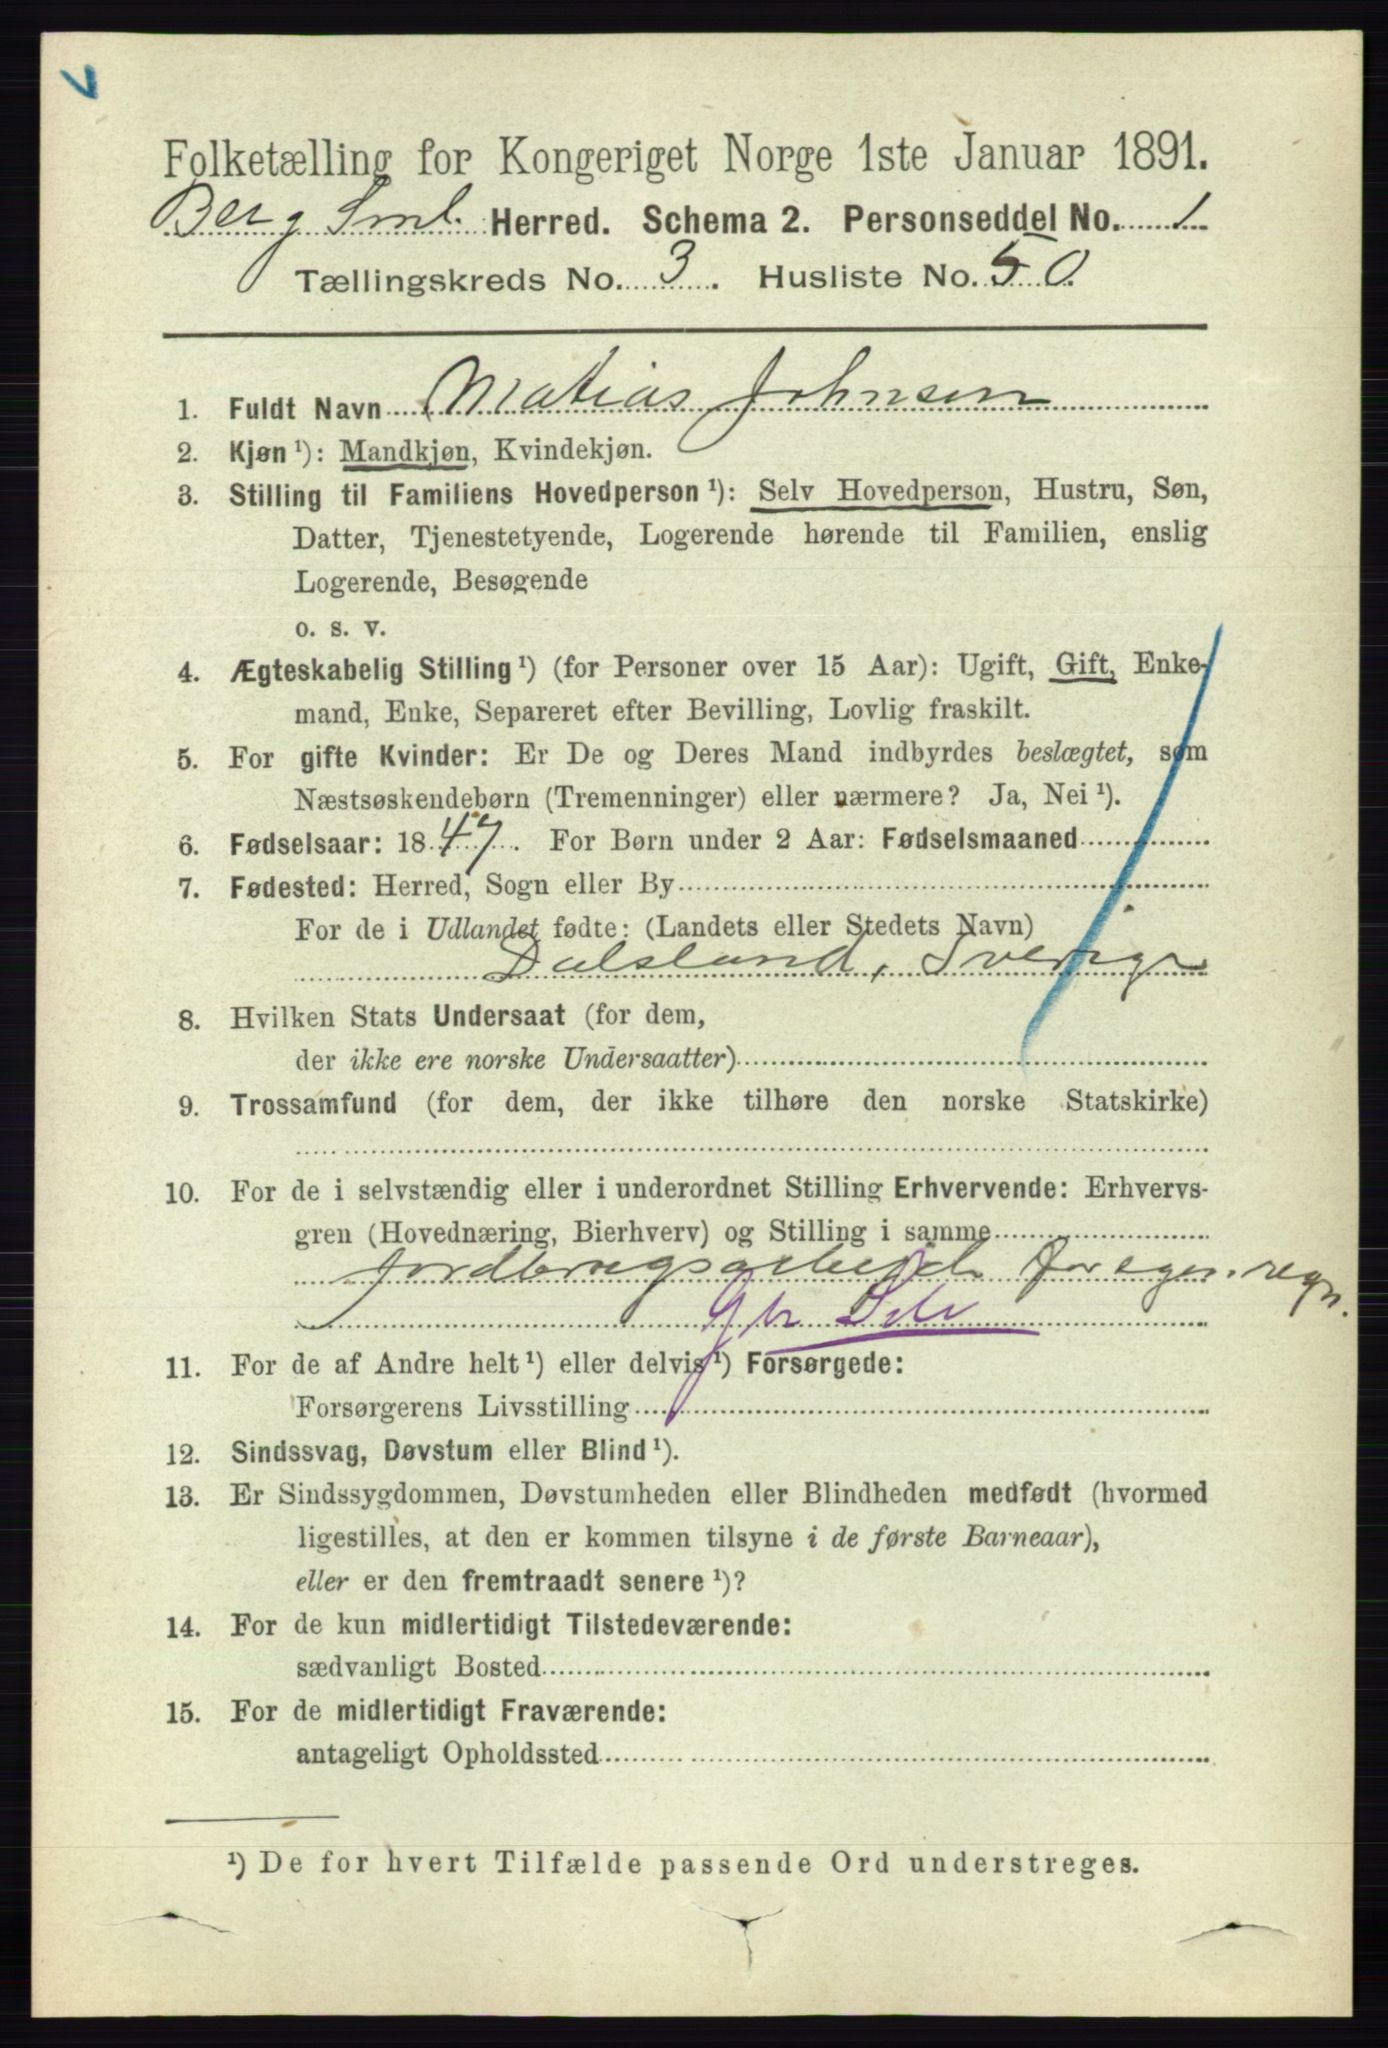 V
Folketælling for Kongeriget Norge 1ste Januar 1891.
Berg Sml. Herred. Schema 2. Personseddel No. 1
Tællingskreds No. 3. Husliste No. 50.
1. Fuldt Navn Matias Johnsen
2. Kjøn ¹): Mandkjøn, Kvindekjøn.
3. Stilling til Familiens Hovedperson ¹): Selv Hovedperson, Hustru, Søn,
Datter, Tjenestetyende, Logerende hørende til Familien, enslig
Logerende, Besøgende
o. s. v.
4. Ægteskabelig Stilling ¹) (for Personer over 15 Aar): Ugift, Gift, Enke-
mand, Enke, Separeret efter Bevilling, Lovlig fraskilt.
5. For gifte Kvinder: Er De og Deres Mand indbyrdes beslægtet, som
Næstsøskendebørn (Tremenninger) eller nærmere? Ja, Nei ¹).
6. Fødselsaar: 1847. For Børn under 2 Aar: Fødselsmaaned
7. Fødested: Herred, Sogn eller By
For de i Udlandet fødte: (Landets eller Stedets Navn)
Dalsland, Sverige
8. Hvilken Stats Undersaat (for dem,
der ikke ere norske Undersaatter)
9. Trossamfund (for dem, der ikke tilhøre den norske Statskirke)
10. For de i selvstændig eller i underordnet Stilling Erhvervende: Erhvervs-
gren (Hovednæring, Bierhverv) og Stilling i samme
Jordbrugsarbeide for egen regn.
11. For de af Andre helt ¹) eller delvis ¹) Forsørgede:
Forsørgerens Livsstilling
12. Sindssvag, Døvstum eller Blind ¹).
13. Er Sindssygdommen, Døvstumheden eller Blindheden medfødt (hvormed
ligestilles, at den er kommen tilsyne i de første Barneaar),
eller er den fremtraadt senere ¹)?
14. For de kun midlertidigt Tilstedeværende:
sædvanligt Bosted
15. For de midlertidigt Fraværende:
antageligt Opholdssted
¹) De for hvert Tilfælde passende Ord understreges.